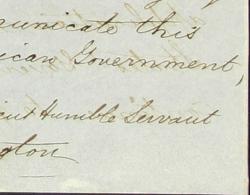 municate this
ican Government,
ent Humble Servant
gton